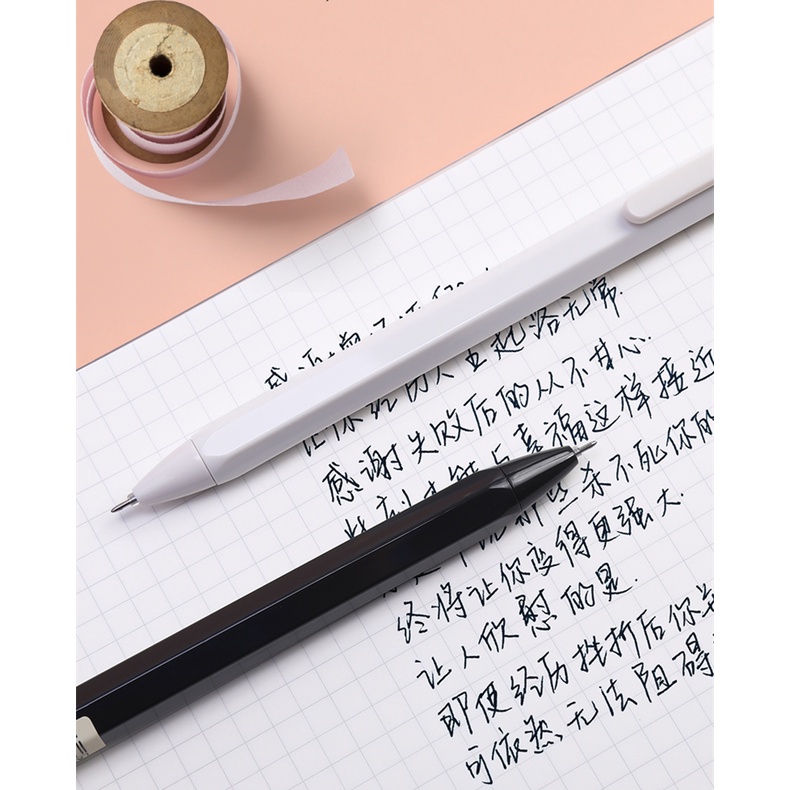 感谢
让你经历人生起落无常.
感谢失败后的从不甘心.
此刻才能与幸福这样接近
那些杀不死你的
终将让你变得更强大.
让人欣慰的是.
即便经历挫折后你并
可依然无法阻碍